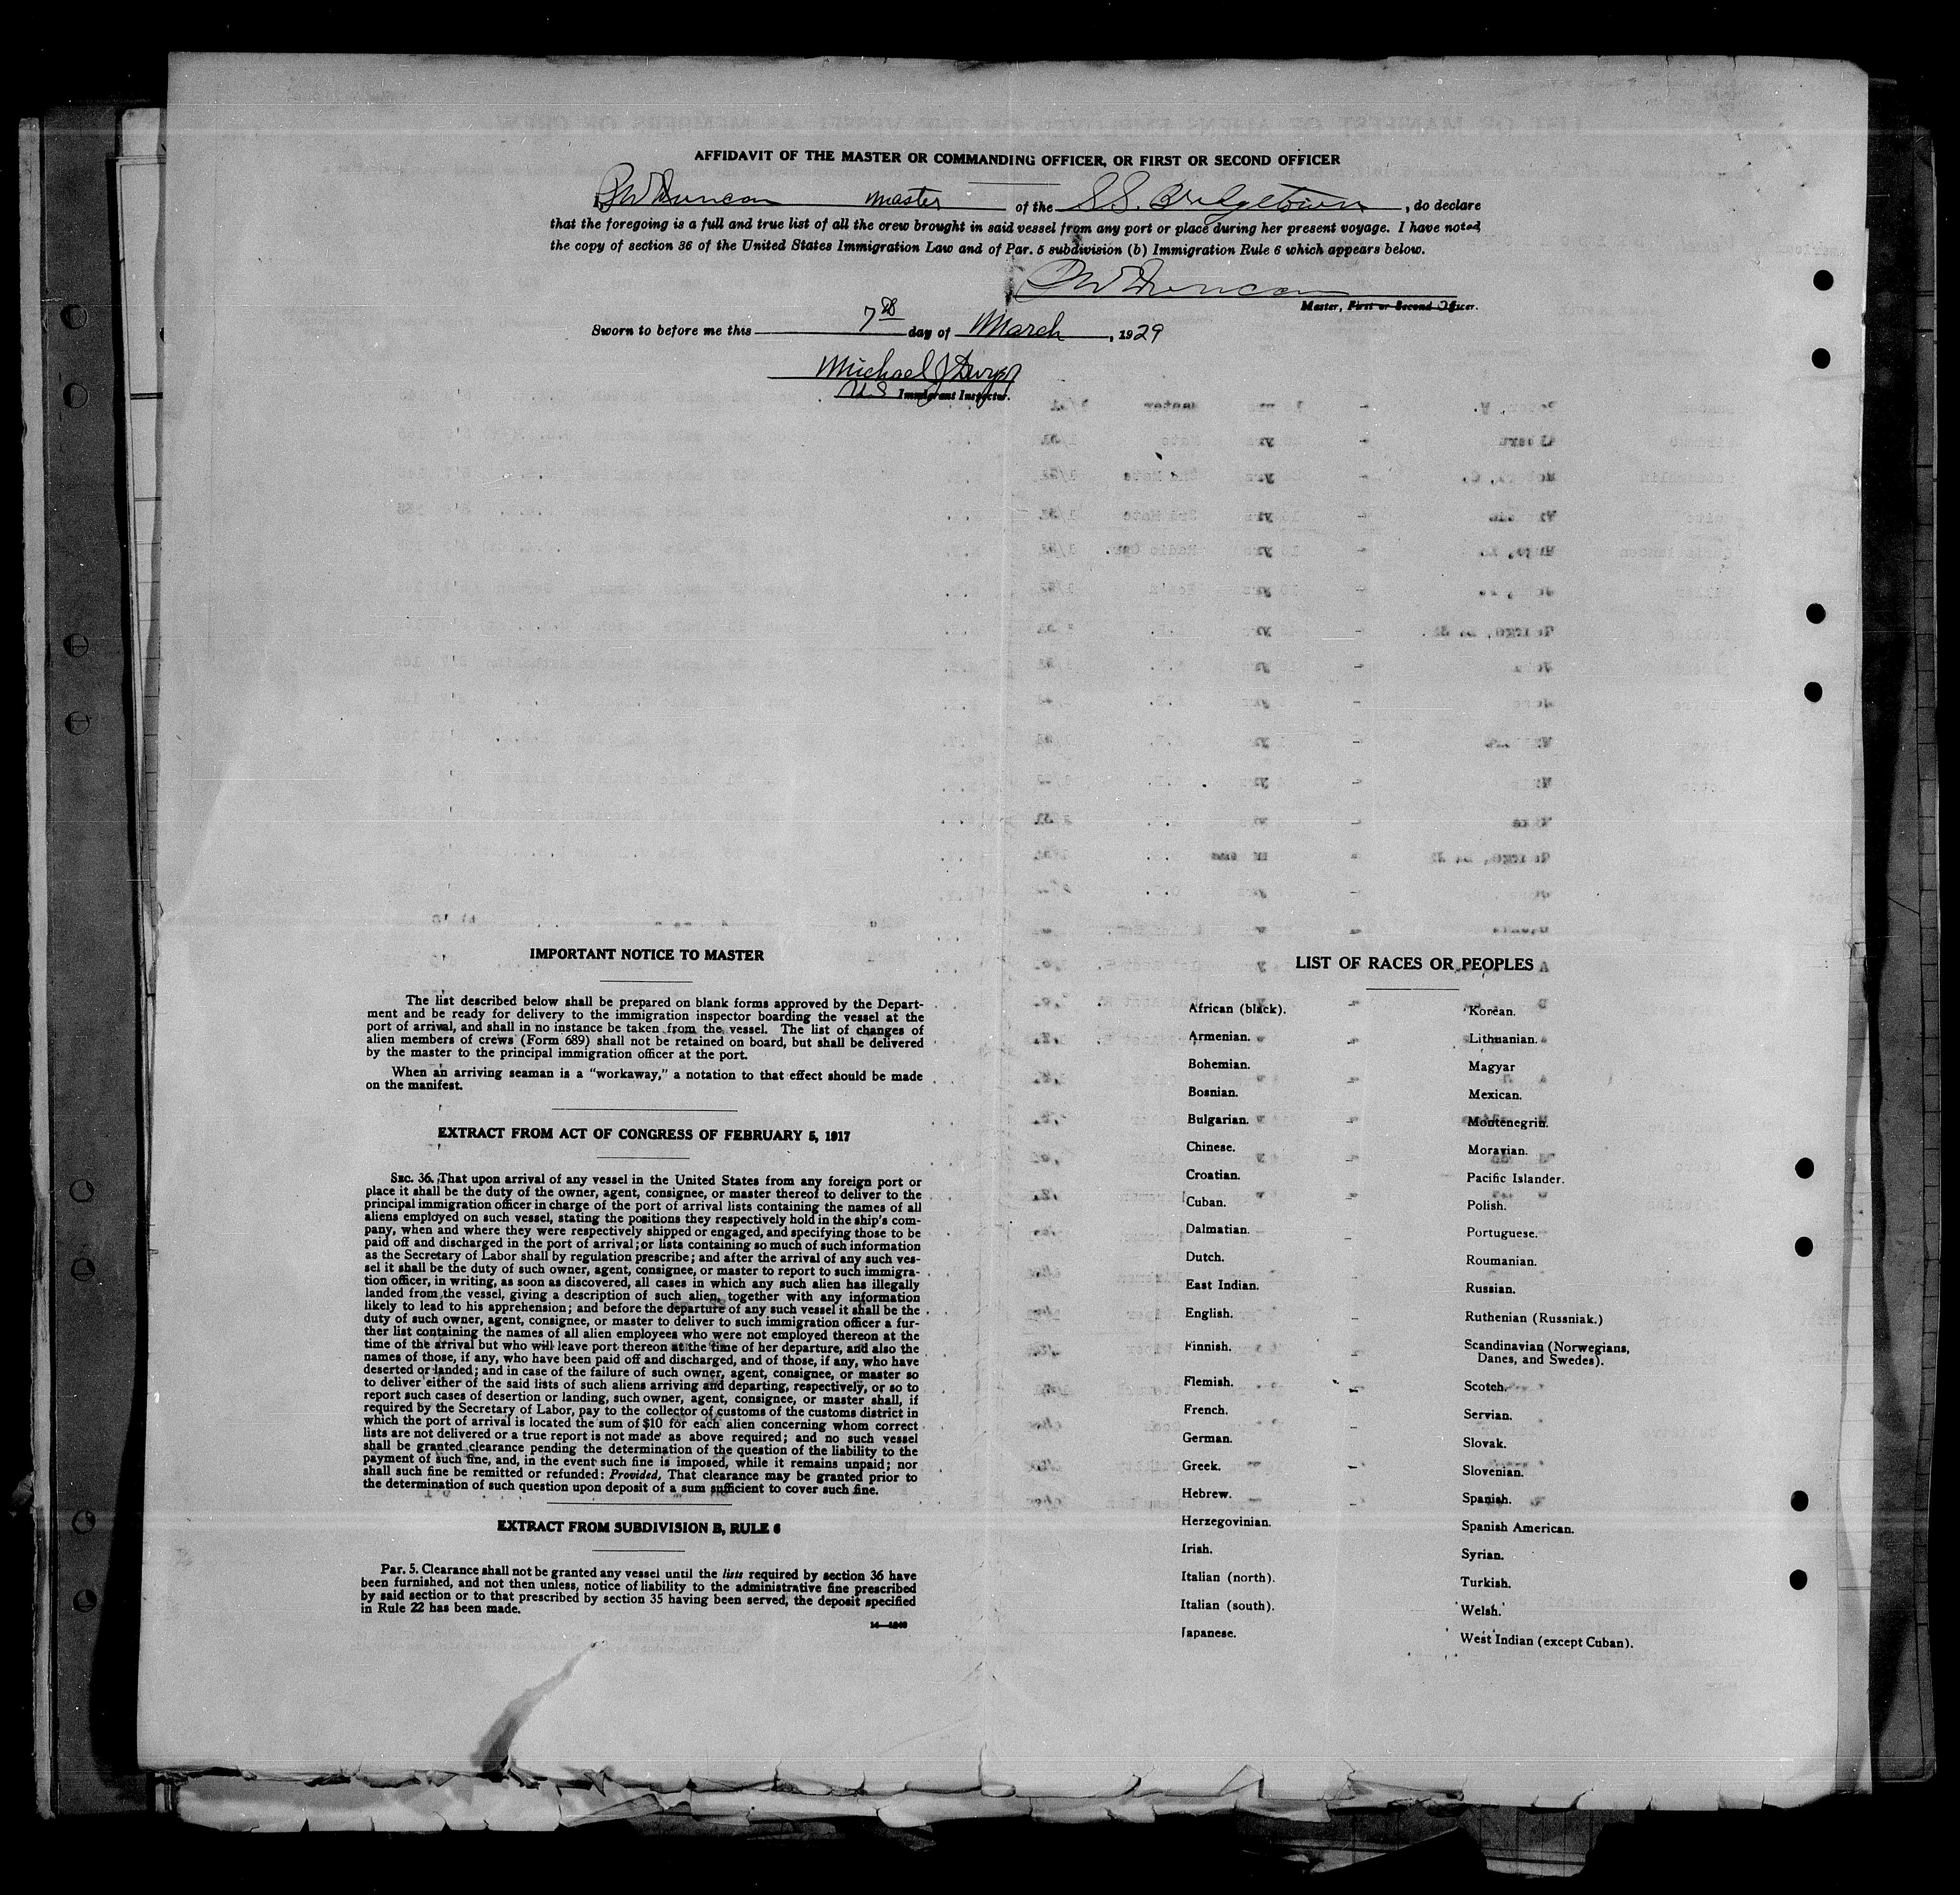 AFFIDAVIT OF THE MASTER OR COMMANDING OFFICER, OR FIRST OR SECOND OFFICER
I, P W Duncan master of the S.S. Bridgetown, do declare
that the foregoing is a full and true list of all the crew brought in said vessel from any port or place during her present voyage. I have noted
the copy of section 36 of the United States Immigration Law and of Par. 5 subdivision (b) Immigration Rule 6 which appears below.
P W Duncan
Master, First or Second Officer.
Sworn to before me this 7th day of March, 1929
Michael J Dwyer
U S Immigrant Inspector.
IMPORTANT NOTICE TO MASTER
The list described below shall be prepared on blank forms approved by the Depart-
ment and be ready for delivery to the immigration inspector boarding the vessel at the
port of arrival, and shall in no instance be taken from the vessel. The list of changes of
alien members of crews (Form 689) shall not be retained on board, but shall be delivered
by the master to the principal immigration officer at the port.
When an arriving seaman is a "workaway," a notation to that effect should be made
on the manifest.
EXTRACT FROM ACT OF CONGRESS OF FEBRUARY 5, 1917
SEC. 36. That upon arrival of any vessel in the United States from any foreign port or
place it shall be the duty of the owner, agent, consignee, or master thereof to deliver to the
principal immigration officer in charge of the port of arrival lists containing the names of all
aliens employed on such vessel, stating the positions they respectively hold in the ship's com-
pany, when and where they were respectively shipped or engaged, and specifying those to be
paid off and discharged in the port of arrival; or lists containing so much of such information
as the Secretary of Labor shall by regulation prescribe; and after the arrival of any such ves-
sel it shall be the duty of such owner, agent, consignee, or master to report to such immigra-
tion officer, in writing, as soon as discovered, all cases in which any such alien has illegally
landed from the vessel, giving a description of such alien, together with any information
likely to lead to his apprehension; and before the departure of any such vessel it shall be the
duty of such owner, agent, consignee, or master to deliver to such immigration officer a fur-
ther list containing the names of all alien employees who were not employed thereon at the
time of the arrival but who will leave port thereon at the time of her departure, and also the
names of those, if any, who have been paid off and discharged, and of those, if any, who have
deserted or landed; and in case of the failure of such owner, agent, consignee, or master so
to deliver either of the said lists of such aliens arriving and departing, respectively, or so to
report such cases of desertion or landing, such owner, agent, consignee, or master shall, if
required by the Secretary of Labor, pay to the collector of customs of the customs district in
which the port of arrival is located the sum of $10 for each alien concerning whom correct
lists are not delivered or a true report is not made as above required; and no such vessel
shall be granted clearance pending the determination of the question of the liability to the
payment of such fine, and, in the event such fine is imposed, while it remains unpaid; nor
shall such fine be remitted or refunded: Provided, That clearance may be granted prior to
the determination of such question upon deposit of a sum sufficient to cover such fine.
EXTRACT FROM SUBDIVISION B, RULE 6
Par. 5. Clearance shall not be granted any vessel until the lists required by section 36 have
been furnished, and not then unless, notice of liability to the administrative fine prescribed
by said section or to that prescribed by section 35 having been served, the deposit specified
in Rule 22 has been made.
14—1240
LIST OF RACES OR PEOPLES
African (black).
Armenian.
Bohemian.
Bosnian.
Bulgarian.
Chinese.
Croatian.
Cuban.
Dalmatian.
Dutch.
East Indian.
English.
Finnish.
Flemish.
French.
German.
Greek.
Hebrew.
Herzegovinian.
Irish.
Italian (north).
Italian (south).
Japanese.
Korean.
Lithuanian.
Magyar
Mexican.
Montenegrin.
Moravian.
Pacific Islander.
Polish.
Portuguese.
Roumanian.
Russian.
Ruthenian (Russniak.)
Scandinavian (Norwegians,
Danes, and Swedes).
Scotch.
Servian.
Slovak.
Slovenian.
Spanish.
Spanish American.
Syrian.
Turkish.
Welsh.
West Indian (except Cuban).